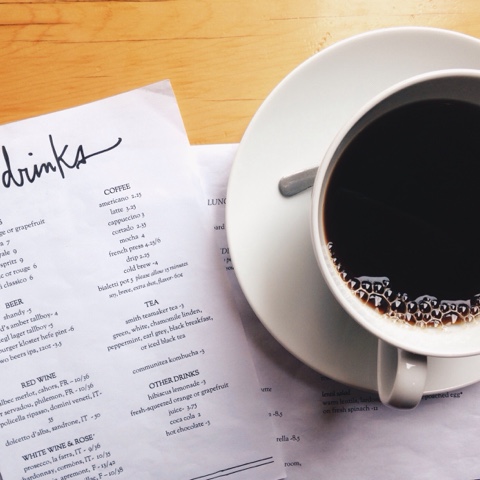 drinks
COFFEE
americano 2.25
latte 3.25
cappuccino 3
cortado 2.33
mocha 4
french press 4.25/6
drip 2.25
cold brew -4
bialetti pot 5 please allow 15 minutes
soy, breve, extra shot, flavor- 60¢
TEA
smith teamaker tea -3
green, white, chamomile linden,
peppermint, earl grey, black breakfast,
or iced black tea
communitea kombucha -5
OTHER DRINKS
hibiscus lemonade -3
fresh-squeezed orange or grapefruit
juice- 3.75
coca cola 2
hot chocolate -3
ge or grapefruit
a 7
yale 9
spritz 9
c or rouge 6
i classico 6
BEER
shandy -5
d's amber tallboy- 4
egl lager tallboy -5
burger kloster hefe pint -6
two beers ipa, 12oz -3.5
RED WINE
malbec merlot, cahors, FR - 10/36
servadou, philemon, FR- 10/36
policella ripasso, domini veneti, IT-
35
dolcetto d'alba, sandrone, IT - 30
WHITE WINE & ROSE'
prosecco, la farra, IT- 9/36
chardonnay, cormòns, IT- 10/35
apremont, F - 13/42
F - 10/38
LUNC
DI
-8.5
rella -8.5
room,
on fresh spinach -12